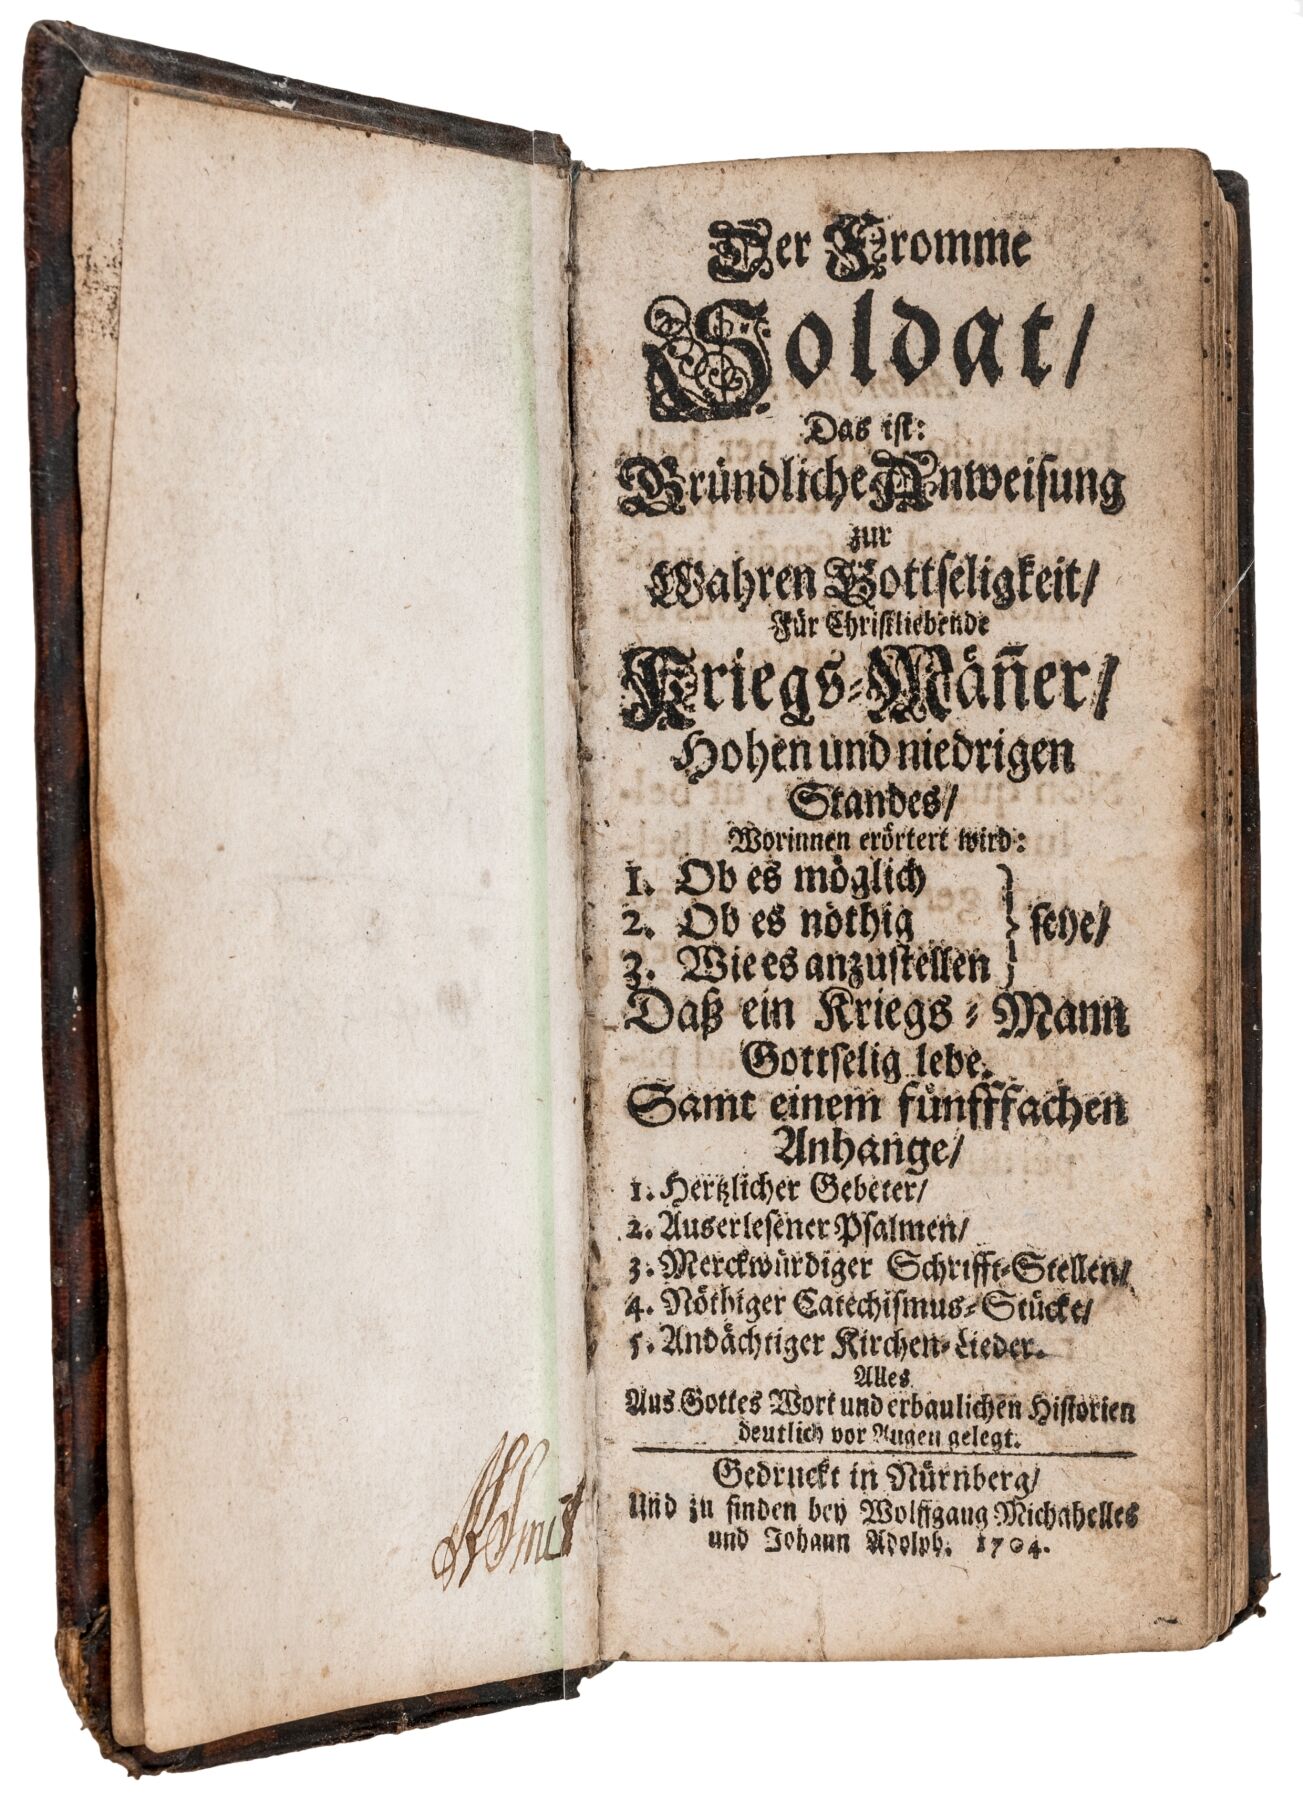 Der Fromme
Soldat/
Das ist:
Gründliche Anweisung
zur
Wahren Gottseligkeit/
Für Christliebende
Kriegs-Mäñer/
Hohen und niedrigen
Standes/
Worinnen erörtert wird:
1. Ob es möglich
2. Ob es nöthig } seye/
3. Wie es anzustellen
Daß ein Kriegs-Mann
Gottselig lebe.
Samt einem fünfffachen
Anhange/
1. Hertzlicher Gebeter/
2. Auserlesener Psalmen/
3. Merckwürdiger Schrifft-Stellen/
4. Nöthiger Catechismus-Stücke/
5. Andächtiger Kirchen-Lieder.
Alles
Aus Gottes Wort und erbaulichen Historien
deutlich vor Augen gelegt.
Gedruckt in Nürnberg/
Und zu finden bey Wolffgang Michahelles
und Johann Adolph. 1704.